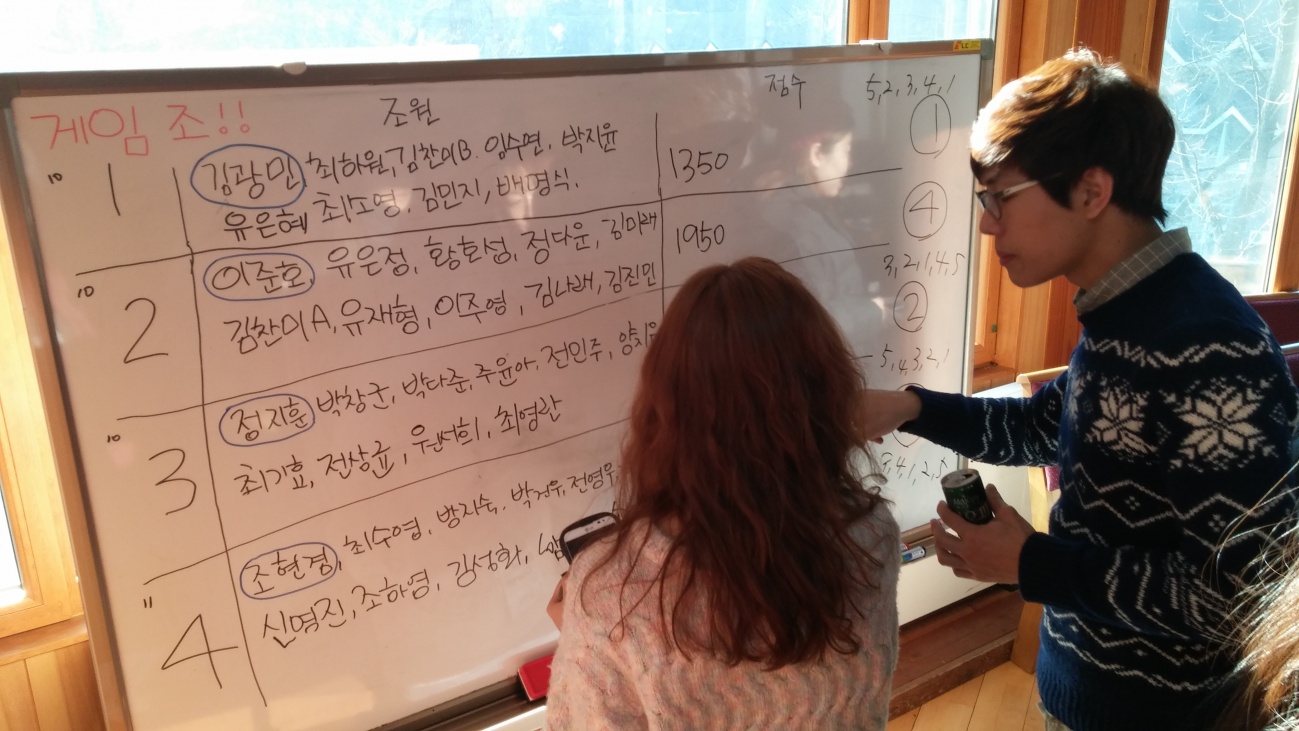 게임 조!!
조원
점수
5, 2, 3, 4, 1
10
1
김광민, 최하원, 김찬미B. 임수연, 박지윤
유은혜 최소영, 김민지, 배명식.
1350
①
10
2
이준호, 유은정, 황화성, 정다운, 김미래
김찬미A, 유재형, 이주영, 김나래, 김진민
1950
④
3, 2, 1, 4, 5
②
10
3
정지훈 박창군, 박다준, 주윤아, 전민주,
최기효, 전상균, 원서희, 최영란
5, 4, 3, 2, 1
11
4
조현경, 최수영, 방지숙, 박건우, 전영우
신명진, 조하영, 김성화,
4, 1, 2, 5